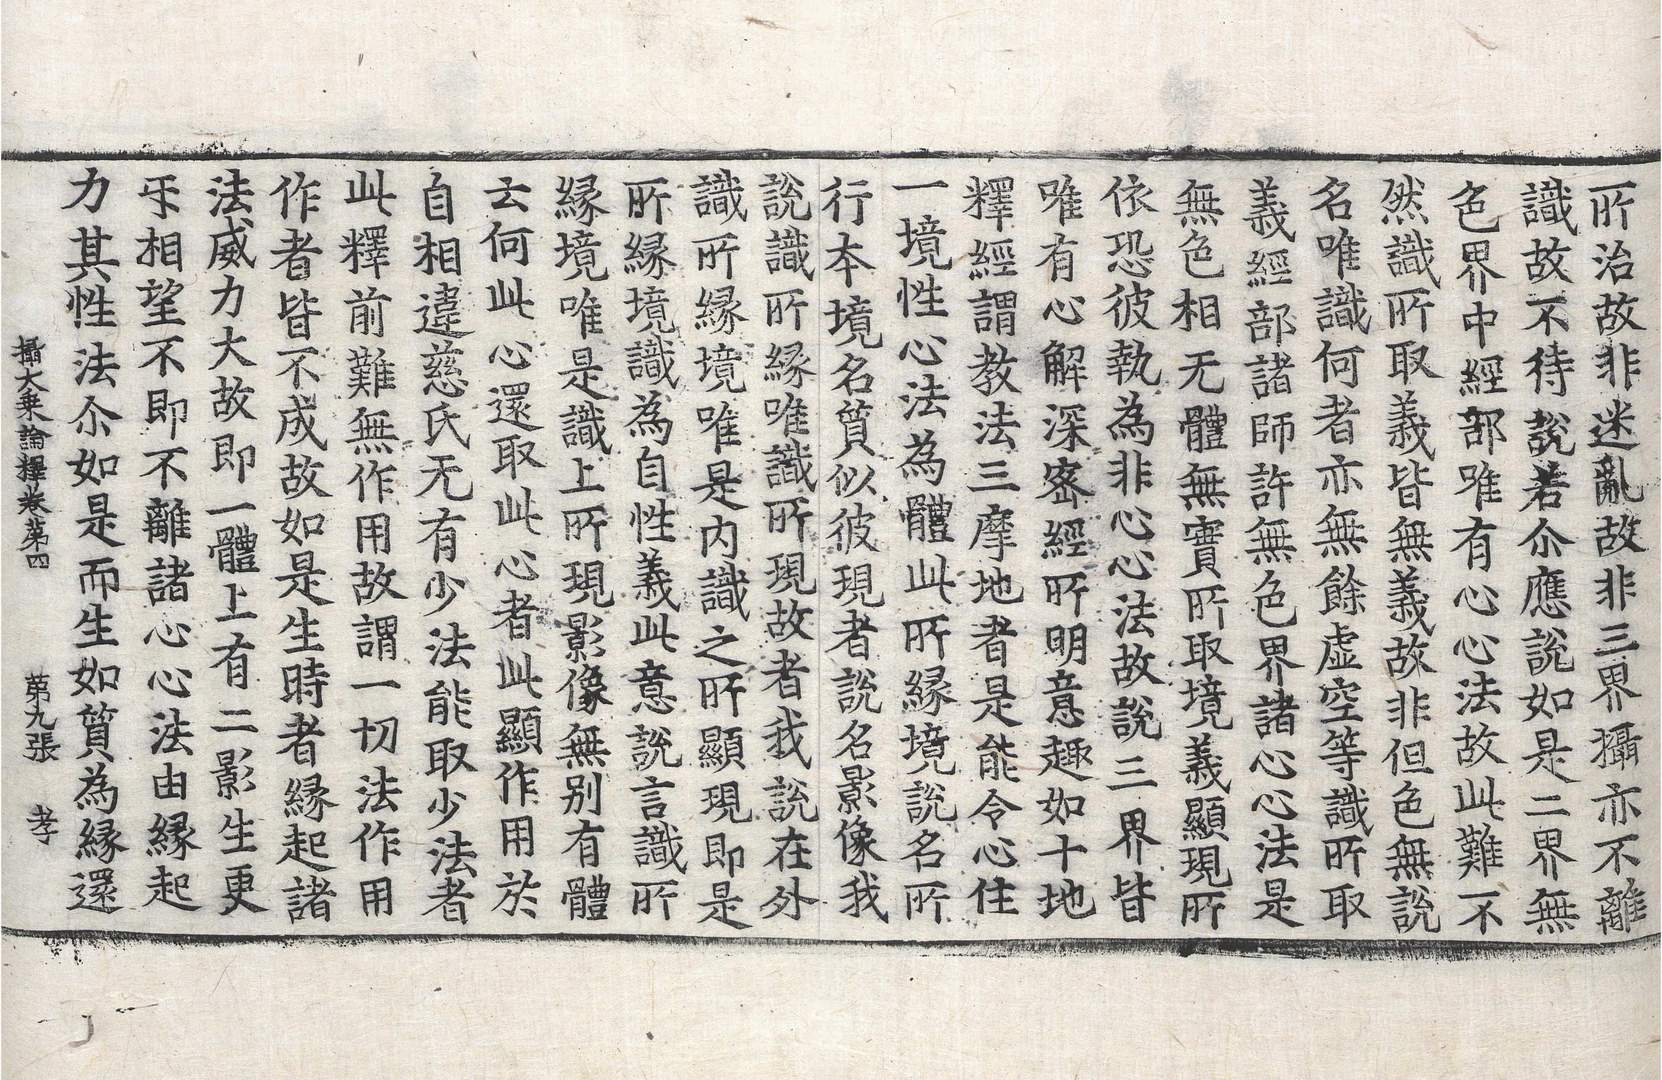 所治故非迷亂故非三界攝亦不離
識故不待說若尒應說如是二界無
色界中經部唯有心心法故此難不
然識所取義皆無義故非但色無說
名唯識何者亦無餘虛空等識所取
義經部諸師許無色界諸心心法是
無色相无體無實所取境義顯現所
依恐彼執為非心心法故說三界皆
唯有心解深密經所明意趣如十地
釋經謂教法三摩地者是能令心住
一境性心法為體此所緣境說名所
行本境名質似彼現者說名影像我
說識所緣唯識所現故者我說在外
識所緣境唯是內識之所顯現即是
所緣境識為自性義此意說言識所
緣境唯是識上所現影像無別有體
云何此心還取此心者此顯作用於
自相違慈氏无有少法能取少法者
此釋前難無作用故謂一切法作用
作者皆不成故如是生時者緣起諸
法威力大故即一體上有二影生更
㸦相望不即不離諸心心法由緣起
力其性法尒如是而生如質為緣還
攝大乘論釋卷第四 第九張 孝